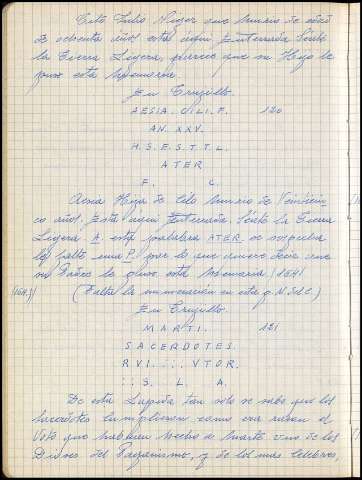 Tito Julio Niger que murio de edad
de ochenta años esta aqui Enterrado Seale
la Tierra Ligera, parece que su Hijo le
puso esta memoria.
En Trujillo.
AESIA. CILI. F. 120
AN. XXV.
H. S. E. S. T. T. L.
ATER
F. C.
Aesia Hija de Cilo murio de Veinticin
co años. Esta aqui Enterrada. Seale la Tierra
Ligera A. esta palabra ATER se sospecha
le falte una P. por lo que quiere decir que
su Padre le puso esta Memoria (164)
(164) (Falta la numeración en esta q M.S.d.C.)
En Trujillo.
MARTI. 121
SACERDOTES.
RVI. : . . VTOR.
: : S. L. A.
De esta Lapida tan solo se sabe que los
Sacerdotes cumplieron como era razon el
Voto que habian hecho a Marte uno de los
Dioses del Paganismo, y de los mas celebres,